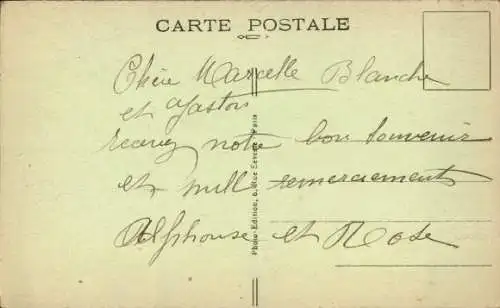 CARTE POSTALE
Chère Marcelle Blanche
et Gaston
recevez notre bon souvenir
et mill remerciements
Alphonse et Rose
Photo-Edition, 6, Rue Paris